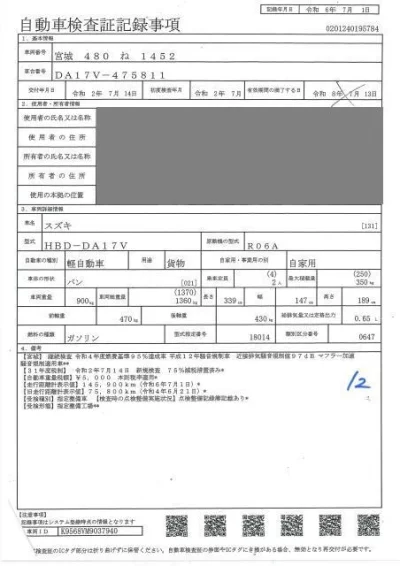 記録年月日 令和 6年 7月 1日
自動車検査証記録事項
0201240195784
1. 基本情報
車両番号 宮城 480 ね 1452
車台番号 DA17V-475811
交付年月日 令和 2年 7月 14日 初度検査年月 令和 2年 7月 有効期間の満了する日 令和 8年 7月 13日
2. 使用者・所有者情報
使用者の氏名又は名称
使用者の住所
所有者の氏名又は名称
所有者の住所
使用の本拠の位置
3. 車両詳細情報
車名 スズキ [131]
型式 HBD-DA17V 原動機の型式 R06A
自動車の種別 軽自動車 用途 貨物 自家用・事業用の別 自家用
車体の形状 バン [021] 乗車定員 (4) 2人 最大積載量 (250) 350kg
車両重量 900kg 車両総重量 (1370) 1360kg 長さ 339cm 幅 147cm 高さ 189cm
前軸重 470kg 後軸重 430kg 総排気量又は定格出力 0.65 L
燃料の種類 ガソリン 型式指定番号 18014 類別区分番号 0647
4. 備考
【宮城】 継続検査 令和4年度燃費基準95%達成車 平成12年騒音規制車 近接排気騒音規制値974B マフラー加速
騒音規制適用車**
【31年度税制】 令和2年7月14日 新規検査 75%減税措置済み*
【自動車重量税額】¥5,000 本則税率適用*
【走行距離計表示値】145,900km(令和6年7月1日)*
【旧走行距離計表示値】75,800km(令和4年6月21日)*
【受検種別】指定整備車 【検査時の点検整備実施状況】点検整備記録簿記載あり*
【受検形態】指定整備工場**
1/2
【注意事項】
記録事項はシステム登録時点の情報となります
車両ID K9568VM9037940
検査証のICタグ部分は折り曲げずに保管ください。自動車検査証の券面やICタグに不備がある場合、無効となり再交付が必要です。